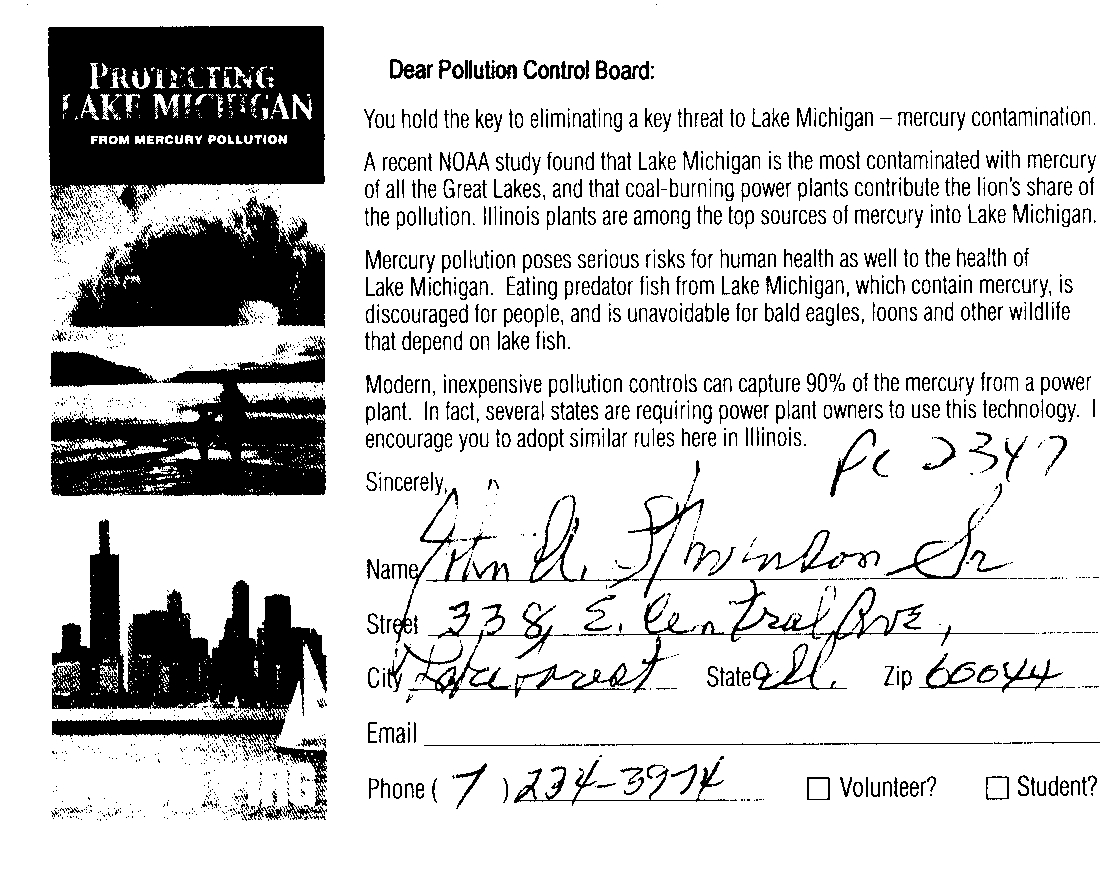 PROTECTING
LAKE MICHIGAN
FROM MERCURY POLLUTION
PIRG
Dear Pollution Control Board:
You hold the key to eliminating a key threat to Lake Michigan – mercury contamination.
A recent NOAA study found that Lake Michigan is the most contaminated with mercury
of all the Great Lakes, and that coal-burning power plants contribute the lion's share of
the pollution. Illinois plants are among the top sources of mercury into Lake Michigan.
Mercury pollution poses serious risks for human health as well to the health of
Lake Michigan. Eating predator fish from Lake Michigan, which contain mercury, is
discouraged for people, and is unavoidable for bald eagles, loons and other wildlife
that depend on lake fish.
Modern, inexpensive pollution controls can capture 90% of the mercury from a power
plant. In fact, several states are requiring power plant owners to use this technology. I
encourage you to adopt similar rules here in Illinois.
PC 2347
Sincerely,
Name John A. Sr
Street 338 E. Central Ave,
City Lake Forest State Ill. Zip 60044
Email
Phone ( 7 ) 234-3974 Volunteer? Student?